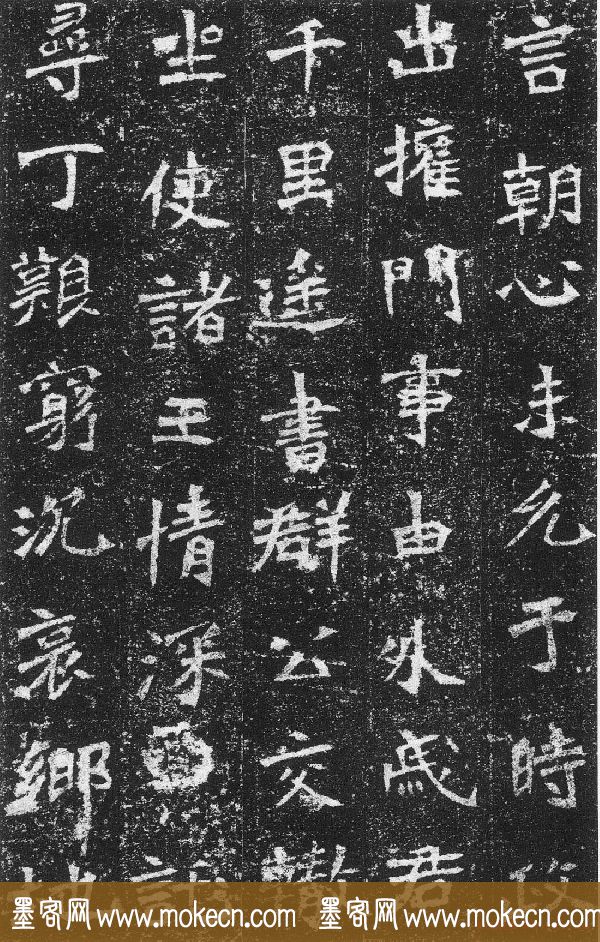 言朝心未允于時
出擁門事由外戚君
千里遥書群公交
坐使諸王情深
尋丁艱窮沉哀鄉
墨客网 www.mokecn.com 墨客网 www.mokecn.com